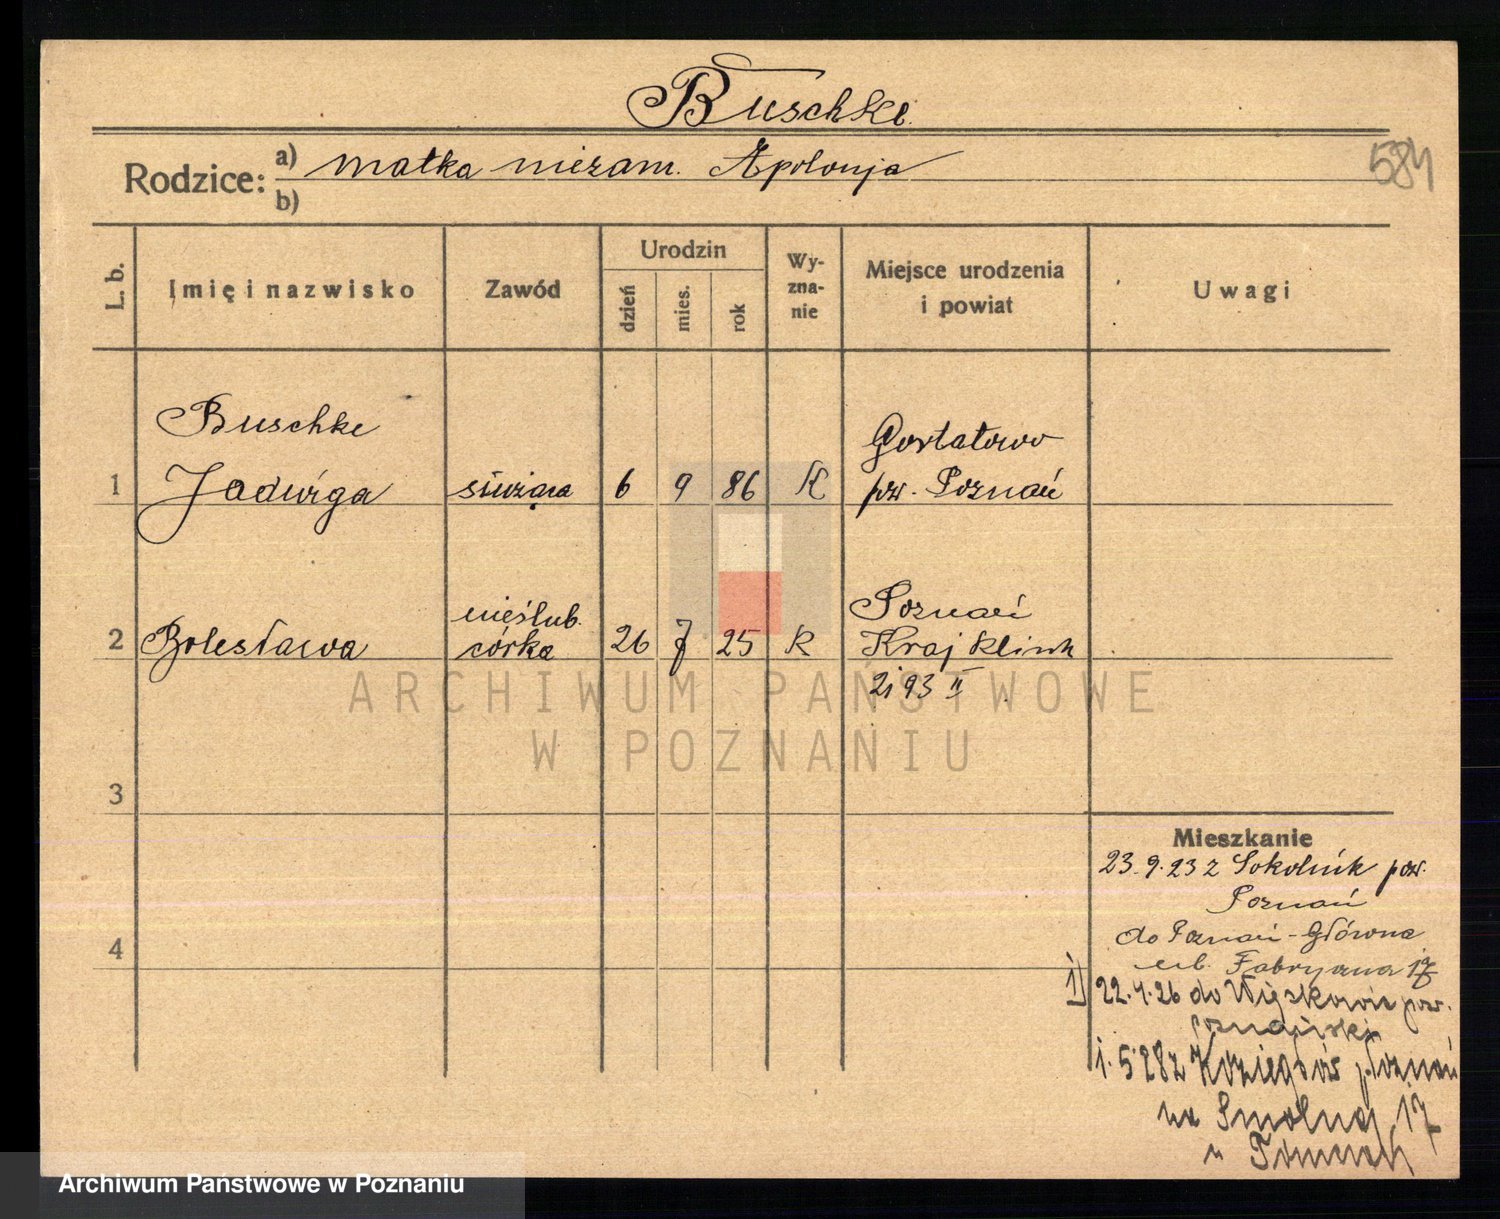 Buschke.
584
Rodzice: a) matka niezam. Apolonja
b)
L. b. Imię i nazwisko Zawód Urodzin dzień mies. rok Wy-zna-nie Miejsce urodzenia i powiat Uwagi
Buschke
Gortatowo
1 Jadwiga służąca 6 9 86 K pow. Poznań
nieślub. Poznań
2 Bolesława córka 26 7 25 K Kraj klinik
2193 II
ARCHIWUM PAŃSTWOWE
W POZNANIU
3
Mieszkanie
23.9.23 z Sokolnik pow.
Poznań
do Poznań-Główna
4
ul. Fabryczna 17
1) 22.4.26 do pow.
poznański
1.5.28 z Koziegłów p. Poznań
na Smolną 17
u
Archiwum Państwowe w Poznaniu